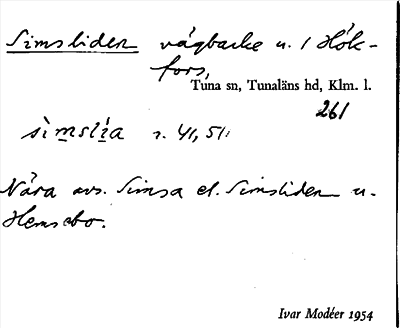 Simsliden vägbacke u. / Hök-
fors,
Tuna sn, Tunaläns hd, Klm. l.
261
sìmslìa r. 41, 51:
Nära avs. Simsa el. Simsliden u.
Hemsebo.
Ivar Modéer 1954